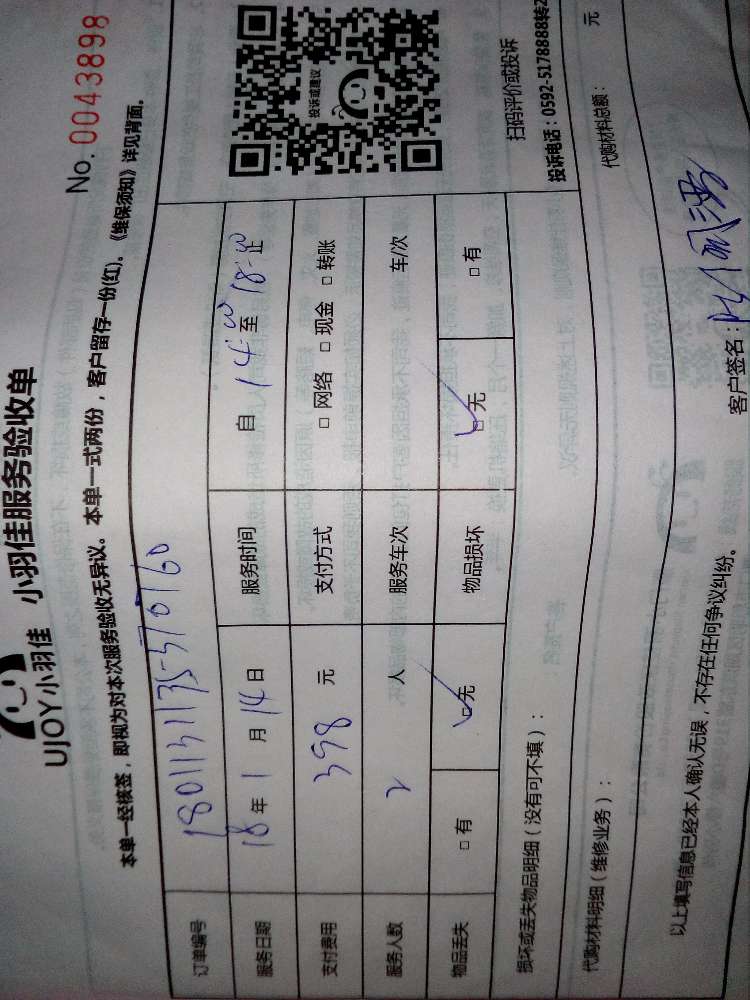 No. 0043898
UJOY小羽佳 小羽佳服务验收单
本单一经核签，即视为对本次服务验收无异议。本单一式两份，客户留存一份(红)。《维保须知》详见背面。
订单编号 1801131135570760
服务日期 18 年 1 月 14 日 服务时间 自 14:00 至 18:00 止
支付费用 398 元 支付方式 □ 网络 □ 现金 □ 转账
服务人数 2 人 服务车次 车/次
物品丢失 □ 有 □ 无 物品损坏 □ 无 □ 有
投诉或建议
扫码评价或投诉
投诉电话：0592-5178888转2
损坏或丢失物品明细（没有可不填）：
代购材料明细（维修业务）： 代购材料总额： 元
以上填写信息已经本人确认无误，不存在任何争议纠纷。 客户签名：